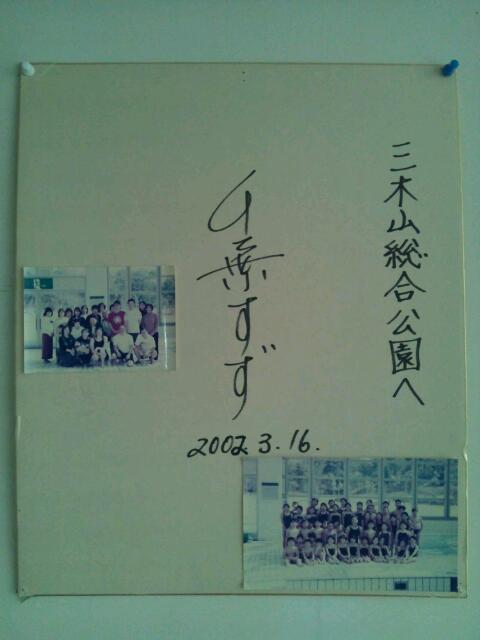 三木山総合公園へ
千葉すず
2002.3.16.